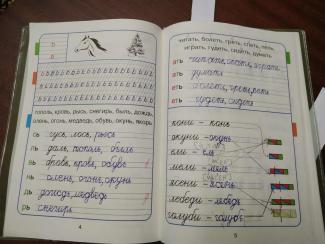 ь
ь
тополь, кровь, рысь, снегирь, быль, дождь,
олень, огонь, медведь, обувь, окунь, якорь
сь гусь, лось, рысь
ль даль, тополь, быль
вь бровь, кровь, обувь
нь олень, огонь, окунь
дь дождь, медведь
рь снегирь
4
читать, болеть, греть, спать, петь,
играть, гудеть, сидеть, думать
ать читать, спать, играть
ать думать
еть болеть, греть, петь
еть гудеть, сидеть
кони – конь
окуни – окунь
ели – ель
мели – мель
ясени – ясень
лебеди – лебедь
голуби – голубь
5